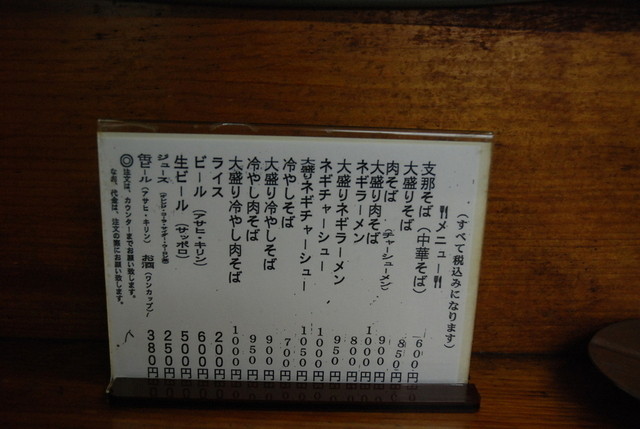 (すべて税込みになります)
メニュー
支那そば(中華そば) 600円
大盛りそば 850円
肉そば(チャーシューメン) 900円
大盛り肉そば 1000円
ネギラーメン 800円
大盛りネギラーメン 950円
ネギチャーシュー 1000円
大盛りネギチャーシュー 1050円
冷やしそば 700円
大盛り冷やしそば 900円
冷やし肉そば 950円
大盛り冷やし肉そば 1000円
ライス 200円
ビール(アサヒ・キリン) 600円
生ビール(サッポロ) 500円
ジュース 250円
缶ビール(アサヒ・キリン) お酒(ワンカップ) 380円
◎注文は、カウンターまでお願い致します。
なお、代金は、注文の際にお願い致します。